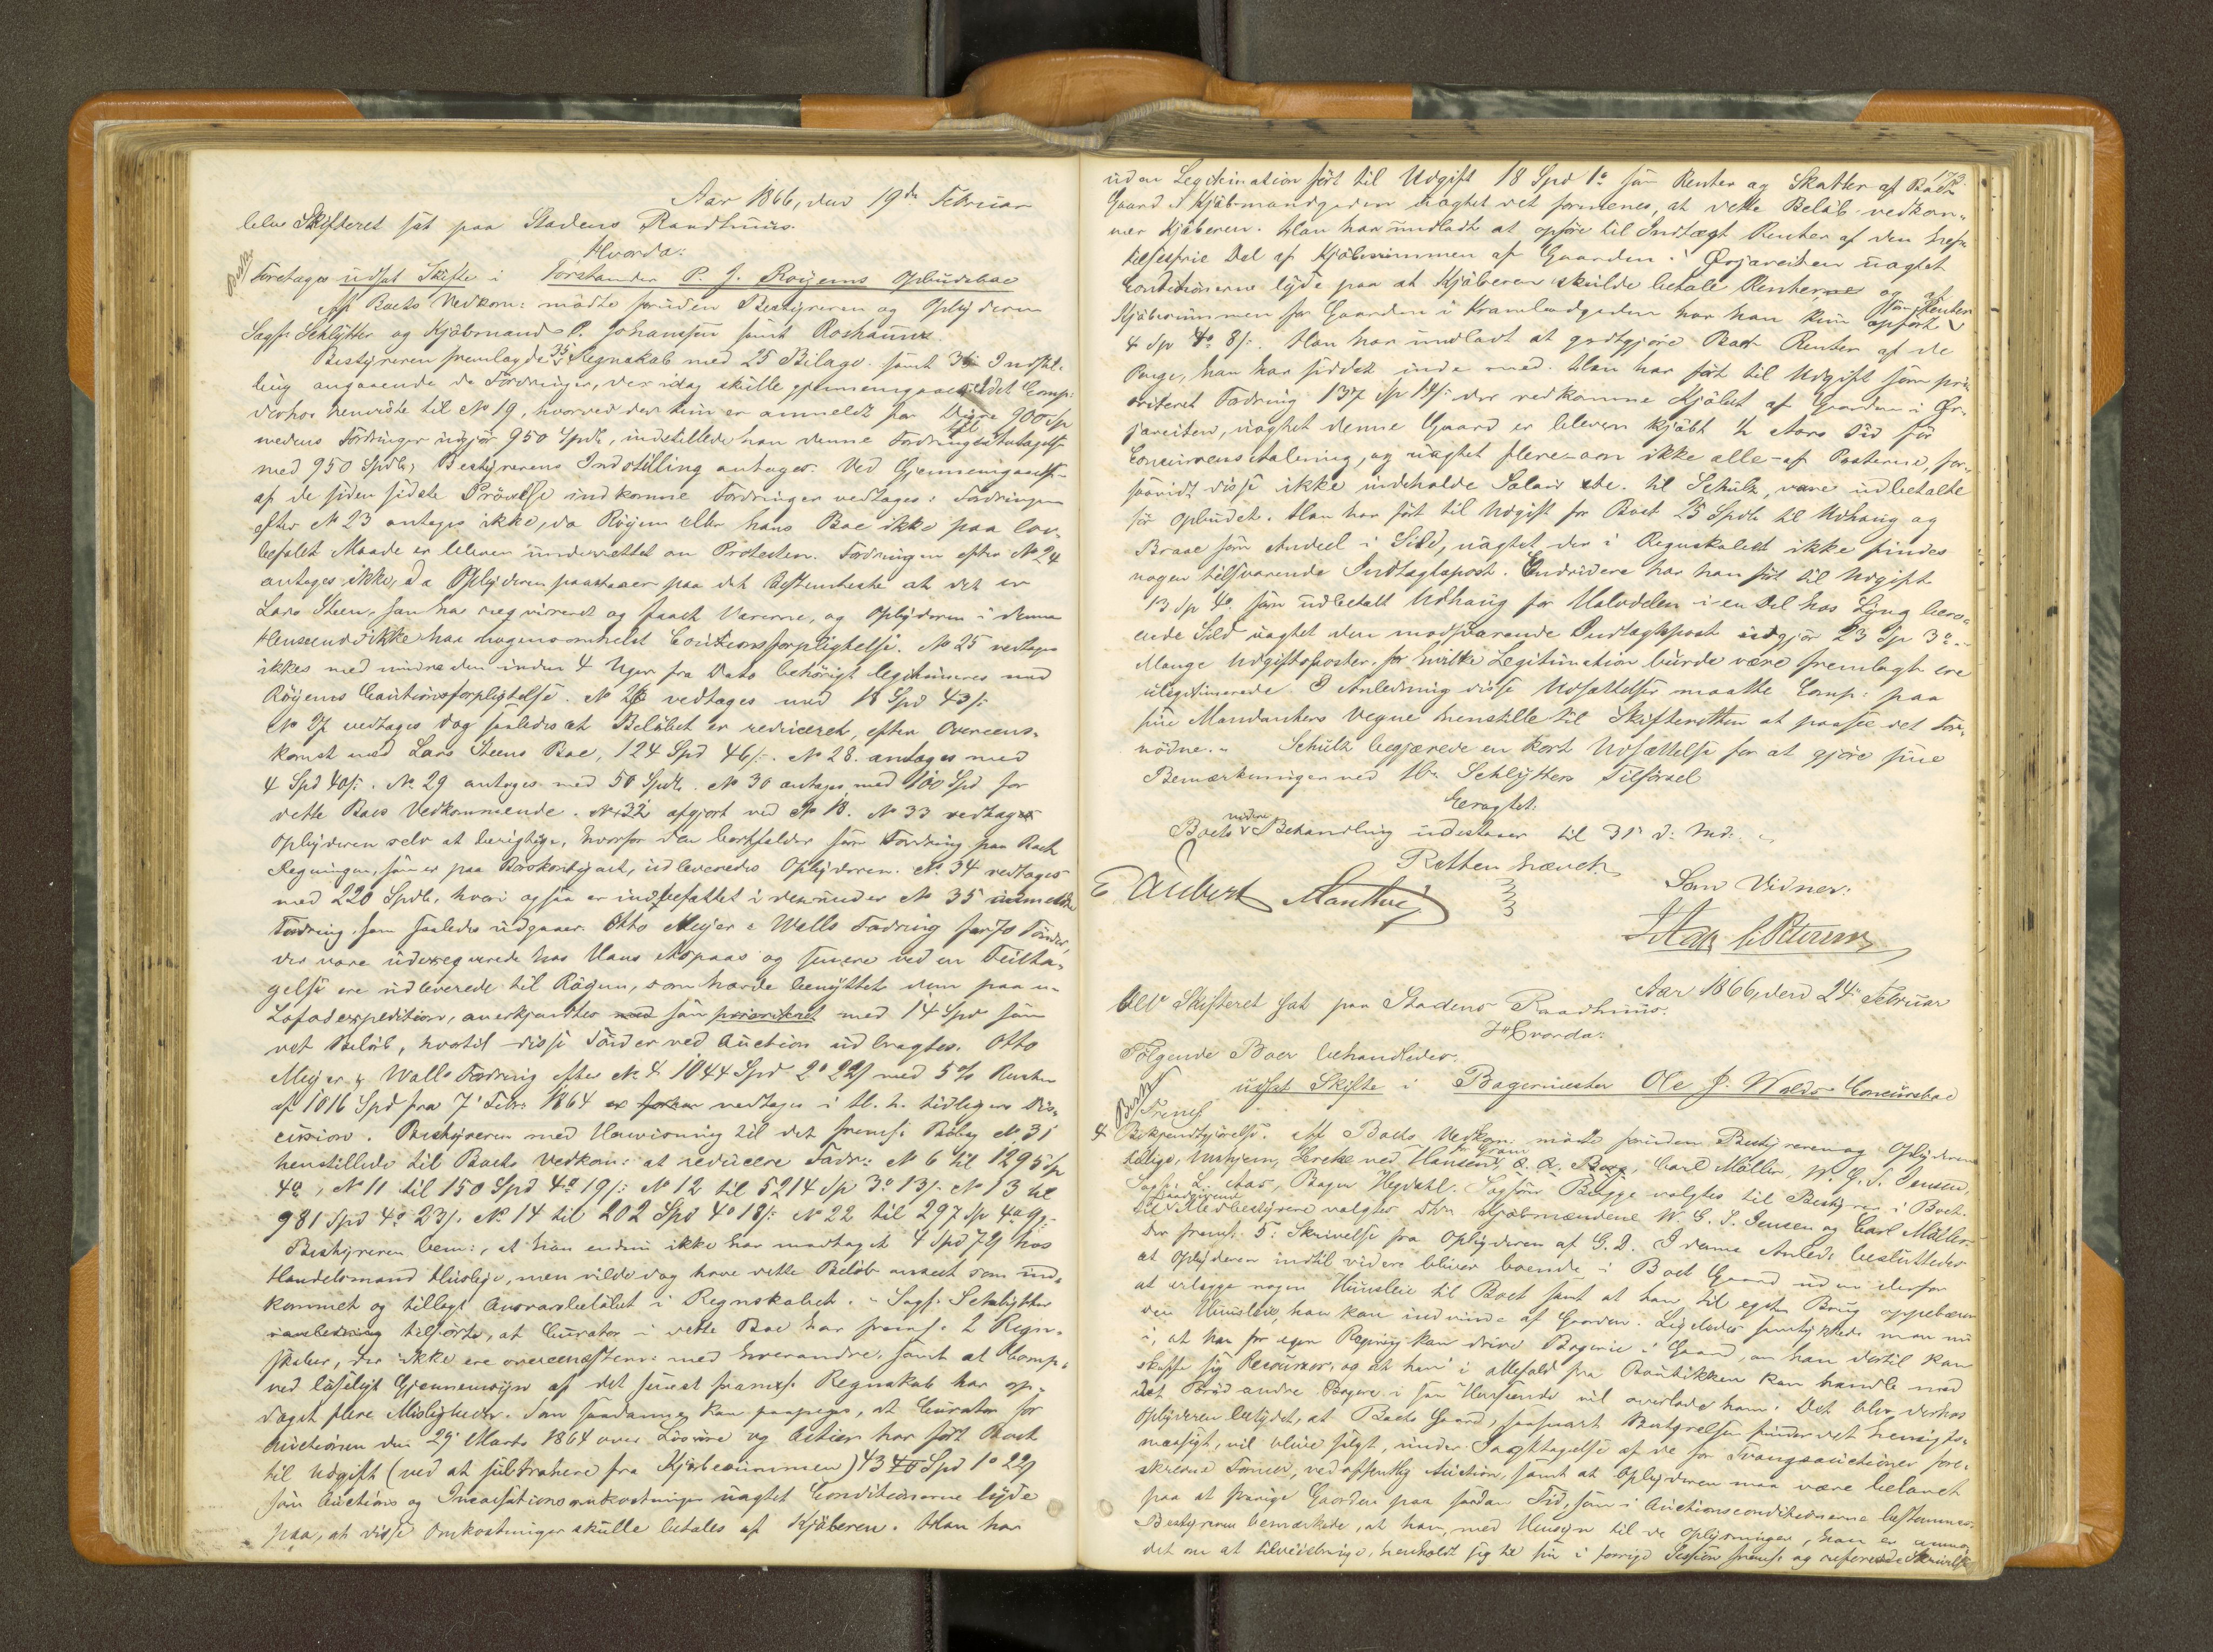 Aar 1866, den 19de Februar
blev Skifteret sat paa Stadens Raadhuus.
Hvorda:
Foretages udsat Skifte i Forstander P. J. Röyems Opbudsboe
Af Boets Vedkom: mödte foruden Bestyreren og Opbyderen
Sagf: Schlytter og Kjöbmand P. Johanssen samt Roshauw.
Bestyreren fremlagde 35 Regnskab med 25 Bilage samt 36 Indstil-
ling angaaende de Fordringer, der idag skulle gjennemgaaes, idet Comp:
derhos henviste til No 19, hvorved der kun er anmeldt for Digre 900 Sp
medens Fordringer udgjör 950 Spdlr, indstillede han denne Fordring antagen
med 950 Spdlr; Bestyrerens Indstilling antages. Ved Gjennemgaaelse
af de siden sidste Prövelse indkomne Fordringer vedtages: Fordringen
efter No 23 antages ikke, da Röyem eller hans Boe ikke paa lov-
befalet Maade er bleven underrettet om Protesten. Fordringen efter No 24
antages ikke, da Opbyderen paastaaer paa det Bestemteste at det er
Lars Steen, som har reqvireret og faaet Varerne, og Opbyderen i denne
Henseende ikke har nogensomhelst Cautionsforpligtelse. No 25 vedtages
ikkes med mindre den inden 4 Uger fra Dato behörigt legitimeres med
Röyems Cautionsforpligtelse. No 26 vedtages med 18 Spd 43 /:
No 27 vedtages dog saaledes at Belöbet er reduceret, efter Overeens-
komst med Lars Steens Boe, 124 Spd 46 /:. No 28. antages med
4 Spd 40 /:. No 29 antages med 50 Spdlr. No 30 antages med 100 Spd for
dette Boes Vedkommende. No 32 afgjort ved No 18. No 33 vedtages
Opbyderen selv at berigtige, hvorfor den bortfalder som Fordring paa Boet
Regningen, som er paa Boskostgjort, udleveredes Opbyderen. No 34 vedtages
med 220 Spdlr, hvori ogsaa er indbefattet i den under No 35 anmeldte
Fordring, som saaledes udgaaer. Otto Meyer & Walls Fordring for 70 Tönder,
der vare udexeqverede hos Hans Aspaas og senere ved en Feilta-
gelse ere udleverede til Rögem, som havde benyttet dem paa en
Lofotexpedition, anerkjendtes som prioriteret med 14 Spd som
det Belöb, hvortil disse Tönder ved Auction udbragtes. Otto
Meyer & Walls Fordring efter No 4 1044 Spd 2o 22 /: med 5 % Renter
af 1016 Spd fra 7' Febr: 1864 vedtages i H. h. tidligere Dis-
cission. Bestyreren med Henvisning til det fremf: Bilag No 31
henstillede til Boets Vedkom: at reducere Fordr: No 6 til 1295 Sp
4o, No 11 til 150 Spd 4o 19 /: No 12 til 5214 Sp 3o 13 /: No 13 til
981 Spd 4o 23 /. No 14 til 202 Spd 4o 18 /: No 22 til 297 Sp 4o 9 /:
Bestyreren bem:, at han endnu ikke har modtaget 4 Spd 72 /: hos
Handelsmand Huseby, men vilde dog have dette Belöb anseet som ind-
kommet og tillagt Ansvarsbelöbet i Regnskabet. Sagf: Schlytter
tilförte, at Curator i dette Boe har fremf: 2 Regn-
skaber, der ikke ere overeenstem: med hverandre, samt at Comp:
ved löseligt Gjennemsyn af det senest fremf: Regnskab har op-
daget flere Misligheder. Som saadanne kan paapeges, at Curator for
Auctionen den 29' Marts 1864 over Lösöre og Actier har fört Boet
til Udgift (ved at subtrahere fra Kjöbesummen) 43 Spd 1o 22 /
som Auctions og Incassationsomkostninger uagtet Conditionerne lyde
paa, at disse Omkostninger skulle betales af Kjöberen. Han har
173.
uden Legitimation fört til Udgift 18 Spd 1o som Renter og Skatter af Boets
Gaard i Kjöbmandgaden uagtet det formenes, at dette Belöb vedkom-
mer Kjöberen. Han har undladt at opföre til Indtægt Renter af den hef-
telsesfrie Del af Kjöbesummen af Gaarden i Örjaveiten uagtet
Conditionerne lyde paa at Kjöberen skulde betale Renter, og af
Kjöbesummen for Gaarden i Krambodgaden har han kun opfört som Renter
4 Sp 4o 8 /:. Han har undladt at godtgjöre Boet Renter af de
Penge, han har siddet inde med. Han har fört til Udgift som pri-
oriteret Fordring 137 Sp 14 /: der vedkomme Kjöbet af Gaarden i Ör-
javeiten, uagtet denne Gaard er bleven kjöbt ½ Aars Tid för
Concursens Aabning, og uagtet flere - om ikke alle - af Posterne, for-
saavidt disse ikke indeholde Salair etc. til Schulz, vare udbetalte
för Opbudet. Han har fört til Udgift for Boet 25 Spdlr til Udhaug og
Braae som Andeel i Sild, uagtet der i Regnskabet ikke findes
nogen tilsvarende Indtægtspost. Endvidere har han fört til Udgift
13 Sp 4o som udbetalt Udhaug for Halvdelen i en Del hos Lyng bero-
ende Sild uagtet den modsvarende Indtægtspost udgjör 23 Sp 3o.
Mange Udgiftsposter, for hvilke Legitimation burde være fremlagt ere
ulegitimerede. I Anledning disse Udsættelser maatte Comp: paa
sine Mandanters Vegne henstille til Skifteretten at paasee det For-
nödne. Schulz begjærede en kort Udsættelse for at gjöre sine
Bemærkninger ved Hr. Schlytters Tilförsel
Eragtet:
Boets videre Behandling udestaaer til 31' d: Md:
Retten hævet.
E Aubert Manthey
Som Vidner:
Aar 1866, den 24' Februar
blev Skifteret sat paa Stadens Raadhuus.
Hvorda:
Fölgende Boer behandledes:
udsat Skifte i Bagermester Ole J. Wolds Concursboe
Fremf:
4 Bekjendtgjörelse. Af Boets Vedkom: mödte foruden Bestyreren og Opbyderen
tillige, Hansen, Carl Möller, W. G. S. Jensen,
Sagf: L. Aas, Bager Hegdahl. Sagförer Bugge valgtes til Bestyrer i Boet.
til Medbestyrere valgtes Dhr Kjöbmændene W. G. S. Jensen og Carl Möller.
Der fremf: 5: Skrivelse fra Opbyderen af G. D. I denne Anledn: besluttedes
at Opbyderen indtil videre bliver boende i Boets Gaard uden derfor
at erlægge nogen Huusleie til Boet samt at han til egen Brug oppebærer
den Huusleie, han kan indvinde af Gaarden. Ligeledes samtykkede man nu
i, at han for egen Regning kan drive Bageriet i Gaard, om han dertil kan
skaffe sig Recourser, og at han i altfald fra Boutikken kan handle med
det Bröd andre Bagere i saa Henseende vil overlade ham. Det blev derhos
Opbyderen betydet, at Boets Gaard, saasnart Bestyrelsen finder det hensigts-
mæssigt, vil blive solgt, under Iagttagelse af de for Tvangsauctioner fore-
skrevne Former, ved offentlig Auction, samt at Opbyderen maa være belavet
paa at fravige Gaarden paa sadan Tid, som i Auctionsconditionerne bestemmes.
Bestyreren bemærkede, at han, med Hensyn til de Oplysninger, han er anmo-
det om at tilveiebringe, henholdt sig til sin i forrige Session fremf: og refererede Skrivelse